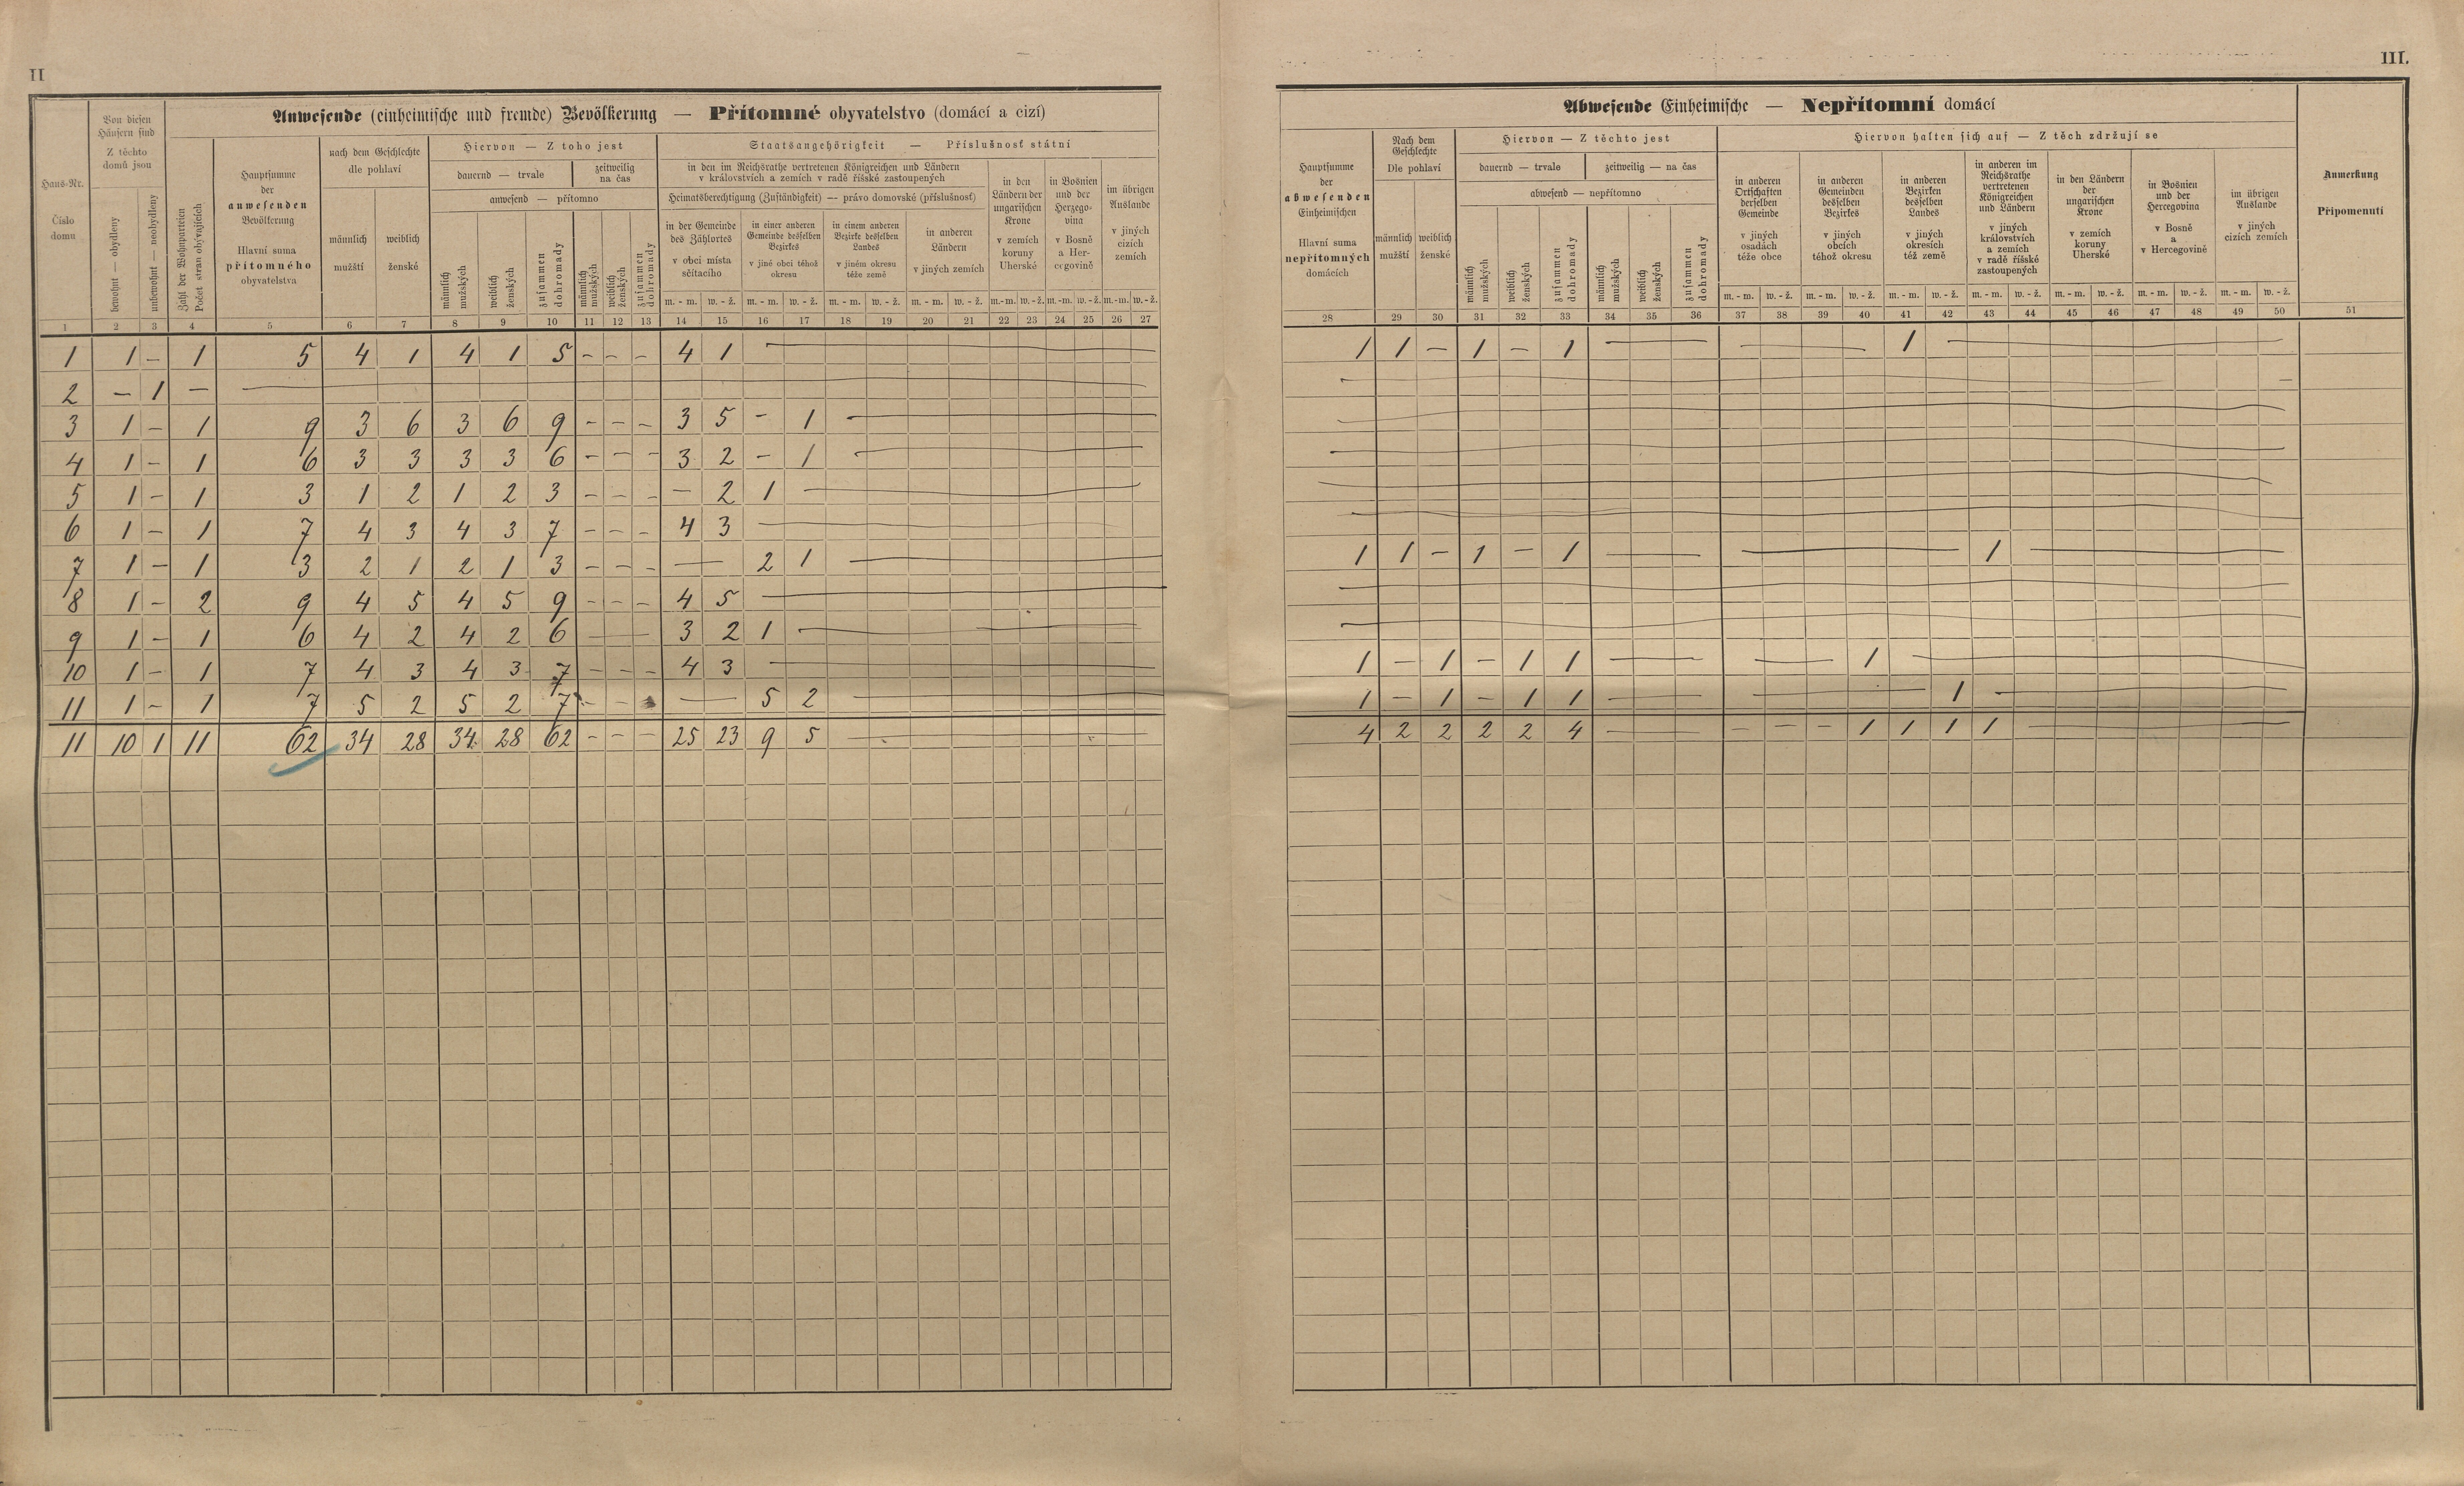 II
III.
Anwesende (einheimische und fremde) Bevölkerung — Přítomné obyvatelstvo (domácí a cizí)
Haus-Nr.
Číslo
domu
Von diesen
Häusern sind
Z těchto
domů jsou
bewohnt — obydleny
unbewohnt — neobydleny
Zahl der Wohnparteien
Počet stran obývajících
Hauptsumme
der
anwesenden
Bevölkerung
Hlavní suma
přítomného
obyvatelstva
nach dem Geschlechte
dle pohlaví
männlich
mužští
weiblich
ženské
Hiervon — Z toho jest
dauernd — trvale
zeitweilig
na čas
anwesend — přítomno
männlich
mužských
weiblich
ženských
zusammen
dohromady
männlich
mužských
weiblich
ženských
zusammen
dohromady
Staatsangehörigkeit — Příslušnosť státní
in den im Reichsrathe vertretenen Königreichen und Ländern
v královstvích a zemích v radě říšské zastoupených
Heimatsberechtigung (Zuständigkeit) — právo domovské (příslušnosť)
in der Gemeinde
des Zählortes
v obci místa
sčítacího
in einer anderen
Gemeinde desselben
Bezirkes
v jiné obci téhož
okresu
in einem anderen
Bezirke desselben
Landes
v jiném okresu
téže země
in anderen
Ländern
v jiných zemích
in den
Ländern der
ungarischen
Krone
v zemích
koruny
Uherské
in Bosnien
und der
Herzego-
vina
v Bosně
a Her-
cegovině
im übrigen
Auslande
v jiných
cizích
zemích
m. - m. w. - ž. m. - m. w. - ž. m. - m. w. - ž. m. - m. w. - ž. m.-m. w.-ž. m.-m. w.-ž. m.-m. w.-ž.
1 2 3 4 5 6 7 8 9 10 11 12 13 14 15 16 17 18 19 20 21 22 23 24 25 26 27
1 1 – 1 5 4 1 4 1 5 – – – 4 1 —
2 – 1 – —
3 1 – 1 9 3 6 3 6 9 – – – 3 5 – 1 —
4 1 – 1 6 3 3 3 3 6 – – – 3 2 – 1 —
5 1 – 1 3 1 2 1 2 3 – – – – 2 1 —
6 1 – 1 7 4 3 4 3 7 – – – 4 3 —
7 1 – 1 3 2 1 2 1 3 – – – — 2 1 —
8 1 – 2 9 4 5 4 5 9 – – – 4 5 —
9 1 – 1 6 4 2 4 2 6 — 3 2 1 —
10 1 – 1 7 4 3 4 3 7 – – – 4 3 —
11 1 – 1 7 5 2 5 2 7 – – – — 5 2 —
11 10 1 11 62 34 28 34 28 62 – – – 25 23 9 5 —
Abwesende Einheimische — Nepřítomní domácí
Hauptsumme
der
abwesenden
Einheimischen
Hlavní suma
nepřítomných
domácích
Nach dem
Geschlechte
Dle pohlaví
männlich
mužští
weiblich
ženské
Hiervon — Z těchto jest
dauernd — trvale
zeitweilig — na čas
abwesend — nepřítomno
männlich
mužských
weiblich
ženských
zusammen
dohromady
männlich
mužských
weiblich
ženských
zusammen
dohromady
Hiervon halten sich auf — Z těch zdržují se
in anderen
Ortschaften
derselben
Gemeinde
v jiných
osadách
téže obce
in anderen
Gemeinden
desselben
Bezirkes
v jiných
obcích
téhož okresu
in anderen
Bezirken
desselben
Landes
v jiných
okresích
též země
in anderen im
Reichsrathe
vertretenen
Königreichen
und Ländern
v jiných
královstvích
a zemích
v radě říšské
zastoupených
in den Ländern
der
ungarischen
Krone
v zemích
koruny
Uherské
in Bosnien
und der
Hercegovina
v Bosně
a
v Hercegovině
im übrigen
Auslande
v jiných
cizích zemích
Anmerkung
Připomenutí
m. - m. w. - ž. m. - m. w. - ž. m. - m. w. - ž. m. - m. w. - ž. m. - m. w. - ž. m. - m. w. - ž. m. - m. w. - ž.
28 29 30 31 32 33 34 35 36 37 38 39 40 41 42 43 44 45 46 47 48 49 50 51
1 1 – 1 – 1 — — 1 —
—
—
—
—
—
1 1 – 1 – 1 — — 1 —
—
—
1 – 1 – 1 1 — — 1 —
1 – 1 – 1 1 — — 1 —
4 2 2 2 2 4 — – – – 1 1 1 1 —